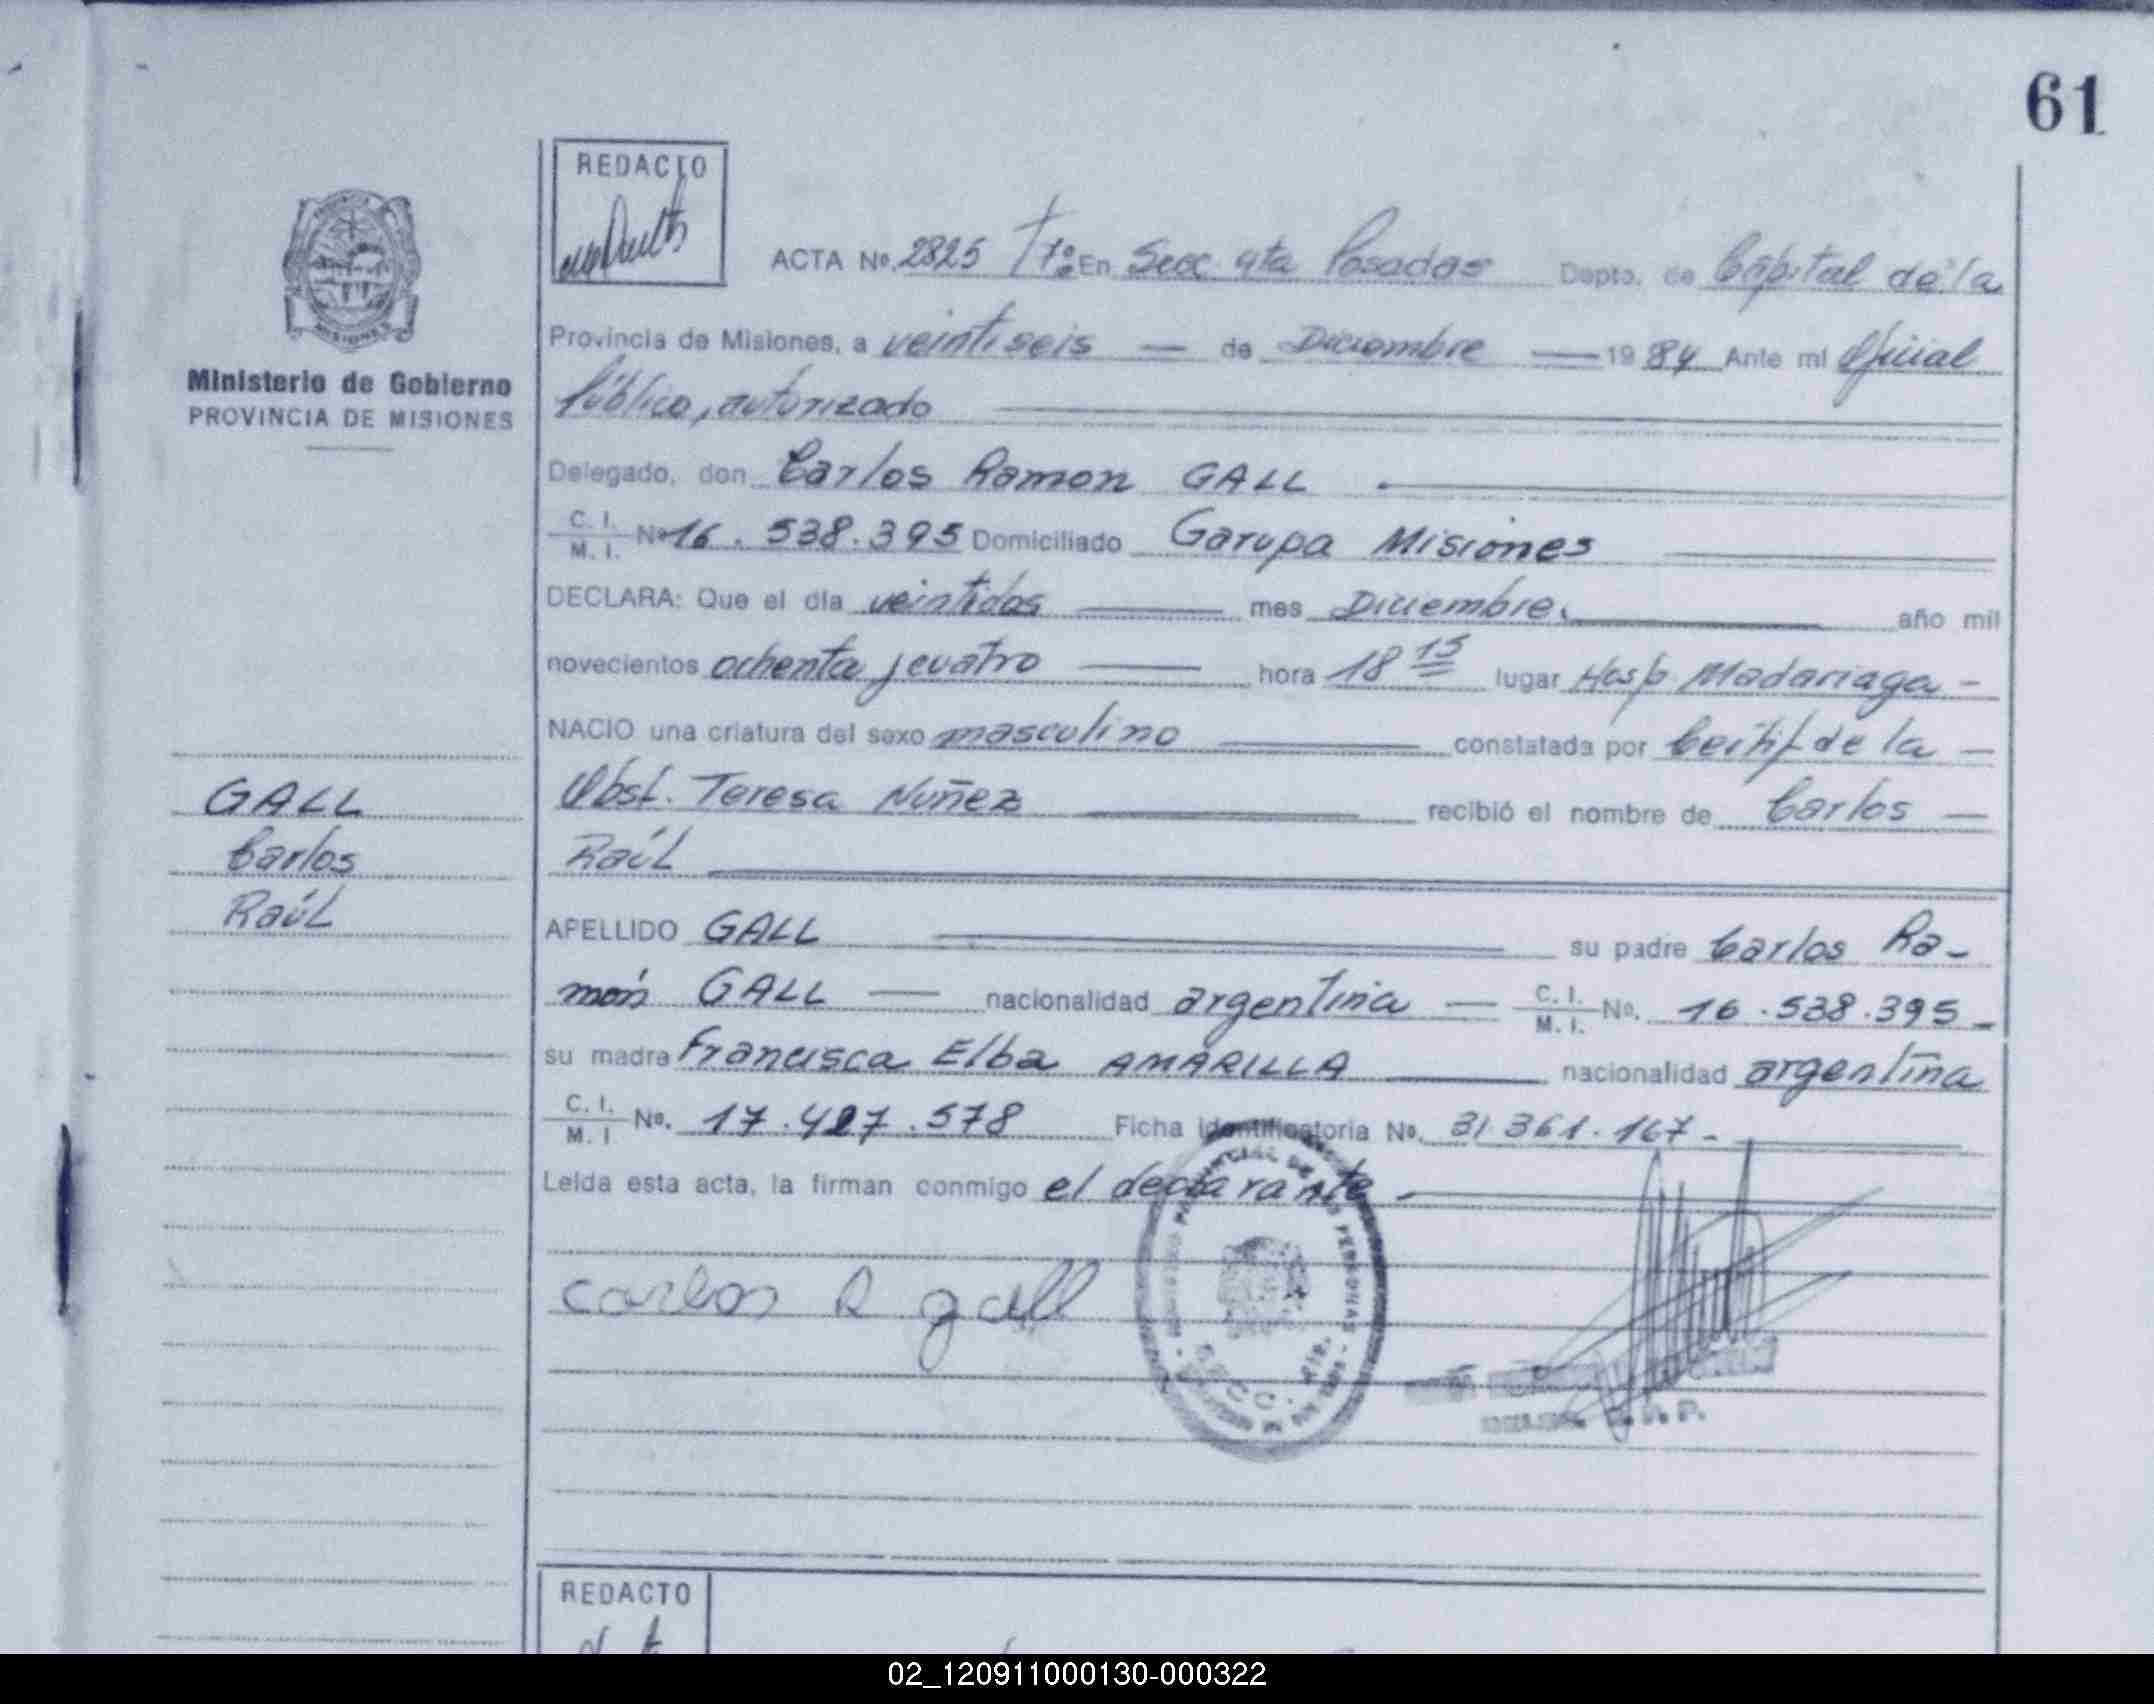 61
REDACTO
ACTA Nº. 2825 Tº 7º En Secc 4ta Posadas Depto. de Capital de la
Provincia de Misiones, a veintiseis — de Diciembre — 19 84 Ante mí Oficial
Público, autorizado
Ministerio de Gobierno
PROVINCIA DE MISIONES
Delegado, don Carlos Ramon GALL
C. I. M. I. Nº 16.538.395 Domiciliado Garupa Misiones
DECLARA: Que el día veintidos — mes Diciembre. año mil
novecientos ochenta y cuatro — hora 18 15 lugar Hosp. Madariaga -
NACIO una criatura del sexo masculino — constatada por Certif de la —
Obst. Teresa Nuñez — recibió el nombre de Carlos —
Raúl
GALL
Carlos
Raúl
APELLIDO GALL — su padre Carlos Ra-
món GALL — nacionalidad argentina — C. I. M. I. Nº. 16.538.395-
su madre Francisca Elba AMARILLA — nacionalidad argentina
C. I. M. I Nº. 17.427.578 Ficha identificatoria Nº. 31 361.167-
Leída esta acta, la firman conmigo el declarante.
Carlos R gall
REDACTO
02_120911000130-000322